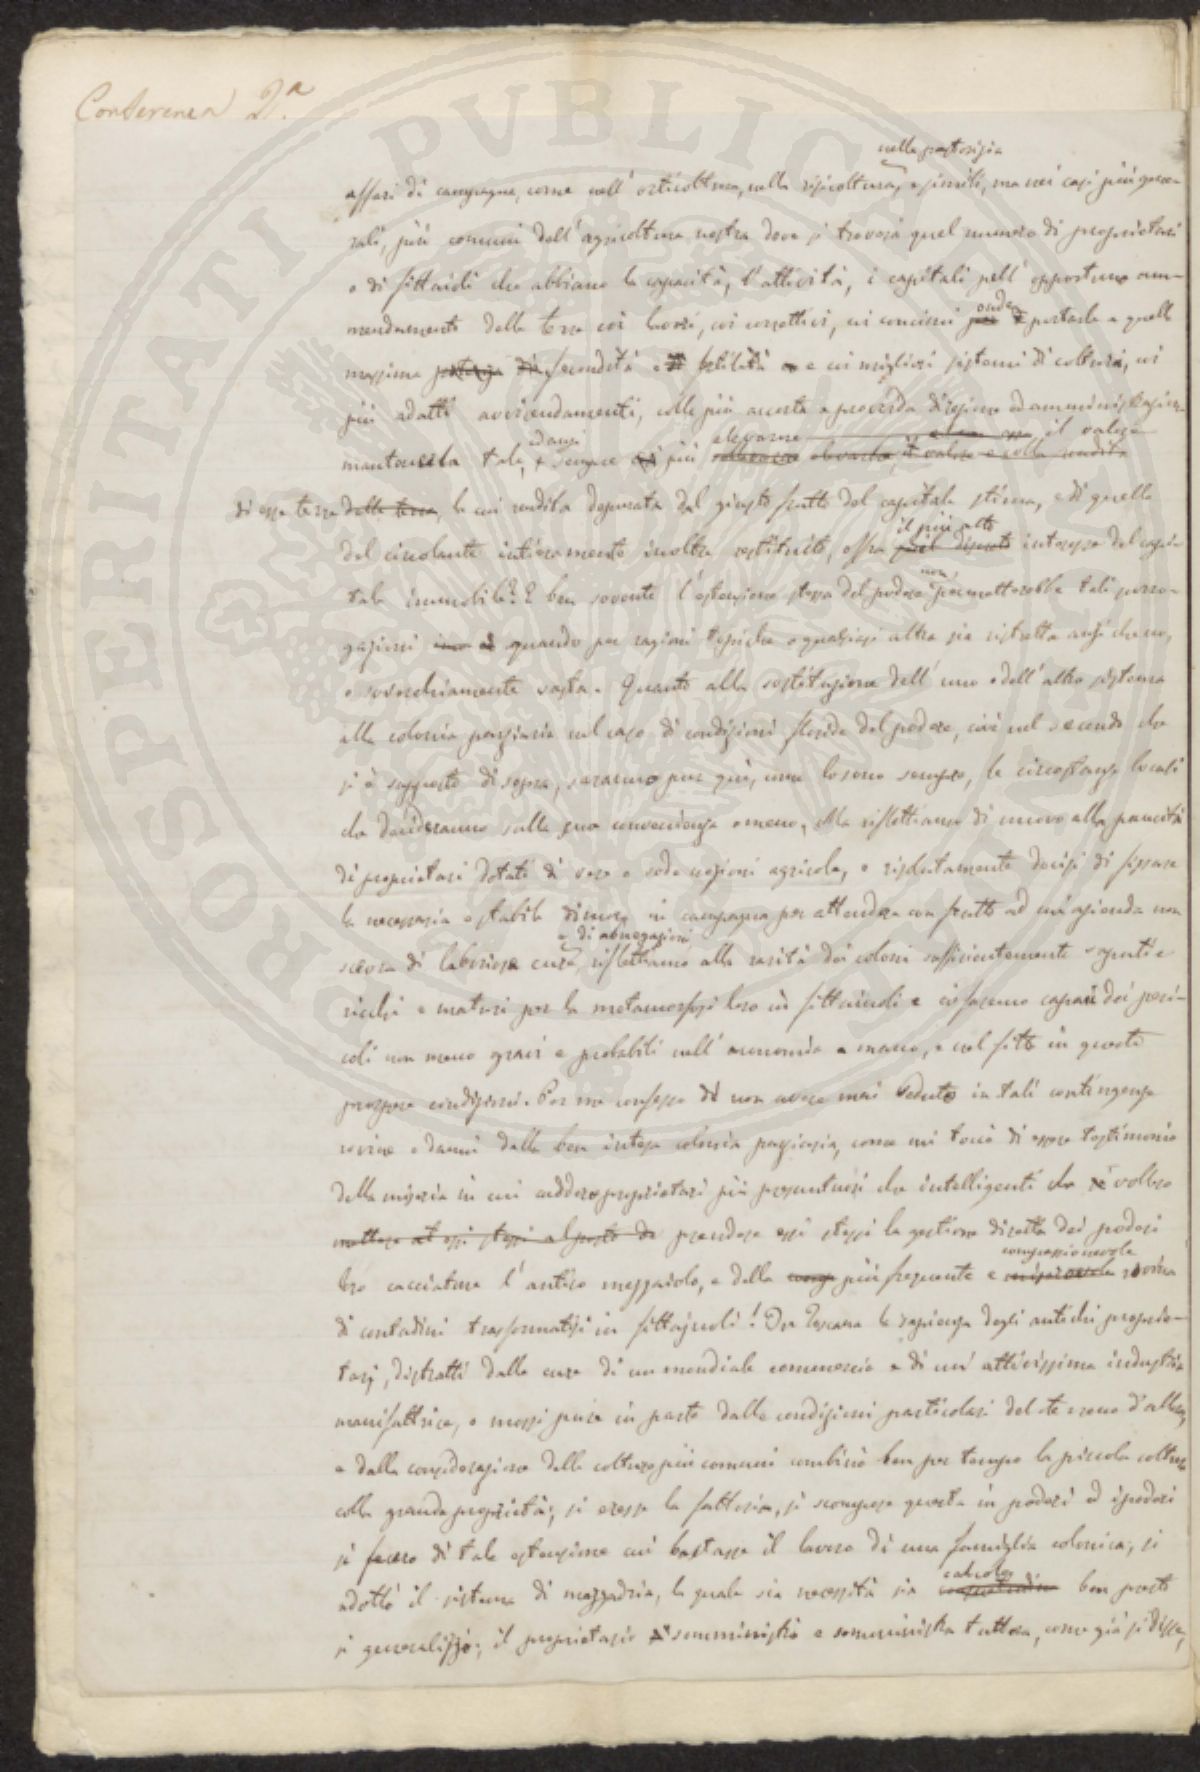 Conferenza 2.a
nella pastorizia
affari di campagna, come nell' orticoltura, nella risicoltura, e simili, ma nei casi più gene-
rali, più comuni dell' agricoltura nostra dove si troverà quel numero di proprietari
o di fittaioli che abbiano la capacità, l'attività, i capitali pell' opportuno am-
mendamento delle terre coi lavori, coi correttivi, coi concimi onde portarle a quella
massima fecondità e fertilità e coi migliori sistemi di coltura, coi
più adatti avvicendamenti, colla più accorta e provvida direzione ed amministrazione
mantenerla tale, ed anzi sempre più elevarne il valore
di esse terre delle terre, la cui rendita depurata dal giusto frutto del capitale stima, e di quello
del circolante intieramente inoltre restituito, offra il più alto interesse del capi-
tale immobile? E ben sovente l'estensione stessa del podere non permetterebbe tali surro-
gazioni quando per ragioni topiche o qualsiasi altra sia ristretta anzi che no,
o soverchiamente vasta. Quanto alla sostituzione dell' uno o dell' altro sistema
alla colonia parziaria nel caso di condizioni floride del podere, cioè nel secondo che
si è supposto di sopra, saranno pur qui, come lo sono sempre, le circostanze locali
che decideranno sulla sua convenienza o meno. Ma riflettiamo di nuovo alla pancità
di proprietari dotati di vere e sode nozioni agricole, e risolutamente decisi di fissare
la necessaria e stabile dimora in campagna per attendere con frutto ad un'azienda non
e di abnegazioni
scevra di laboriose cure, riflettiamo alla rarità dei coloni sufficientemente esperti e
ricchi e maturi per la metamorfosi loro in fittaiuoli e ci faremo capaci dei peri-
coli non meno gravi e probabili nell' economia a mano, e nel fitto in queste
prospere condizioni. Per me confesso di non avere mai veduto in tali contingenze
rovine e danni dalla ben intesa colonia parziaria, come mi toccò di essere testimonio
della miseria in cui caddero proprietari più presuntuosi che intelligenti che vollero
mettere essi stessi al posto di prendere essi stessi la gestione diretta dei poderi
loro cacciatone l'antico mezzaiolo, e della più frequente e compassionevole rovina
di contadini trasformatisi in fittajuoli! In Toscana la sapienza degli antichi proprie-
tarj, distratti dalle cure di un mondiale commercio e di un' attivissima industria
manifattrice, e mossi pure in parte dalle condizioni particolari del terreno d'allora,
e dalla considerazione delle colture più comuni combinò ben per tempo la piccola coltura
colla grande proprietà; si eresse la fattoria, si scompose questa in poderi ed i poderi
si fecero di tale estensione cui bastasse il lavoro di una famiglia colonica; si
adottò il sistema di mezzadria, la quale sia necessità sia calcolo ben presto
si generalizzò; il proprietario somministrò e somministra tuttora, come già si disse,